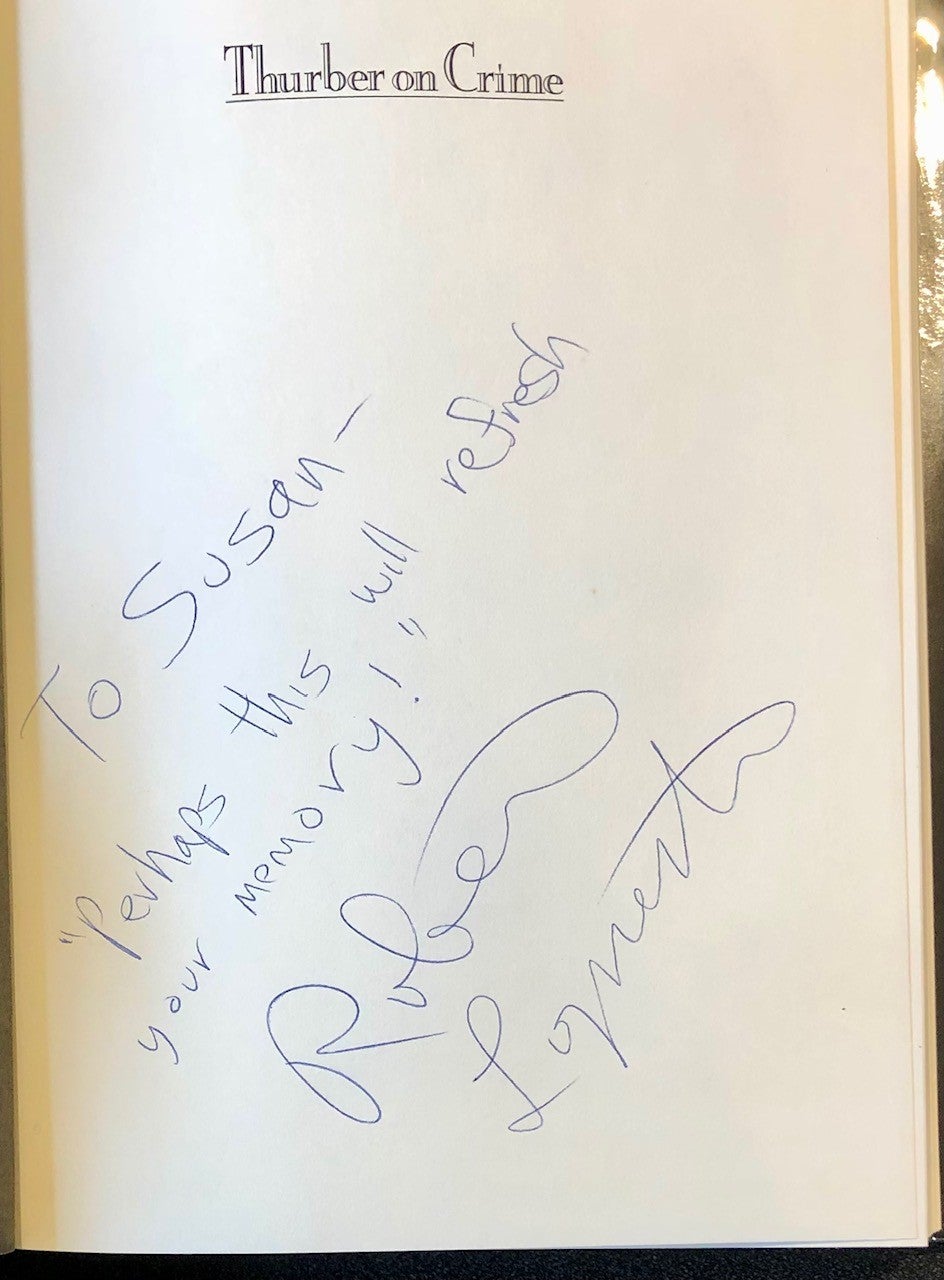 Thurber on Crime
To Susan-
"Perhaps this will refresh
your memory!"
Robert
Lopresti